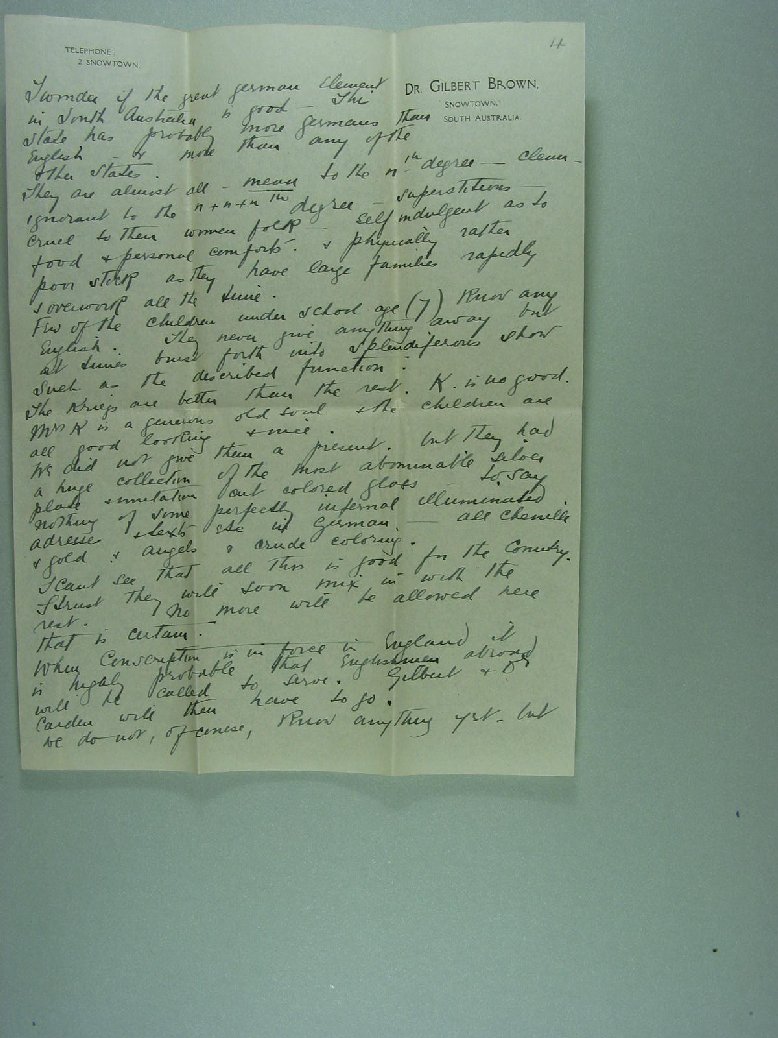 4
TELEPHONE,
2 SNOWTOWN.
DR. GILBERT BROWN,
SNOWTOWN,
SOUTH AUSTRALIA.
I wonder if the great german element
in South Australia is good — The
State has probably more germans than
English — & more than any of the
other States.
They are almost all — mean to the nth degree — clean —
ignorant to the n+n+n th degree — superstitious —
cruel to their women folk — self indulgent as to
food & personal comforts. & physically rather
poor stock as they have large families rapidly
& overwork all the time.
Few of the children under school age (7) know any
English. They never give anything away but
at times burst forth into splendiferous show
such as the described function.
The Kruegs are better than the rest. K. is no good.
Mrs K is a generous old soul & the children are
all good looking & nice.
We did not give them a present. but they had
a huge collection of the most abominable silver
plate & imitation cut colored glass — to say
nothing of some perfectly infernal illuminated
adresses & texts etc in German. — all chenille
& gold & angels & crude coloring.
I cant see that all this is good for the Country.
I trust they will soon mix in with the
rest. No more will be allowed here
that is certain.
When Conscription is in force in England it
is highly probable that Englishmen abroad
will be called to serve. Gilbert & Dr
Carden will then have to go.
We do not, of course, know anything yet — but